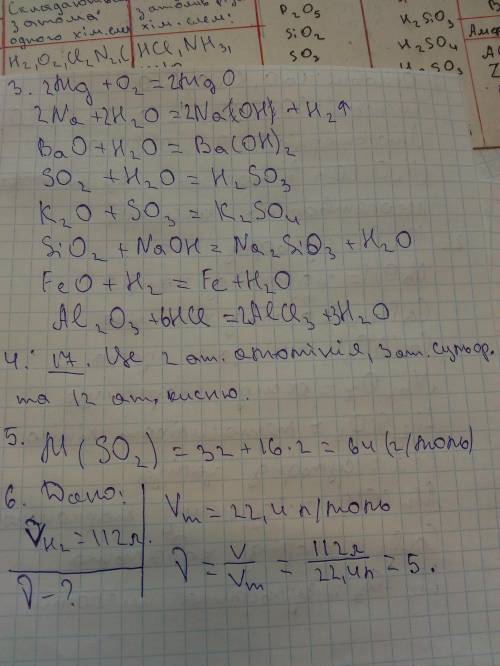 Складаються
з атомів
одного хім. елем.
з атомів
хім. елем.
P₂O₅
SiO₂
SO₃
H₂SiO₃
H₂SO₄
H₂SO₃
H₂, O₂, Cl₂, N₂,
HCl, NH₃,
3. 2Mg + O₂ = 2MgO
2Na + 2H₂O = 2Na(OH) + H₂↑
BaO + H₂O = Ba(OH)₂
SO₂ + H₂O = H₂SO₃
K₂O + SO₃ = K₂SO₄
SiO₂ + NaOH = Na₂SiO₃ + H₂O
FeO + H₂ = Fe + H₂O
Al₂O₃ + 6HCl = 2AlCl₃ + 3H₂O
4. 17. Це 2 ат. алюмінія, 3 ат. сульфур.
та 12 ат. кисню.
5. M(SO₂) = 32 + 16·2 = 64 (г/моль)
6. Дано:
V H₂ = 112 л.
ν - ?
Vm = 22,4 л/моль
ν = V/Vm = 112л/22,4л = 5.